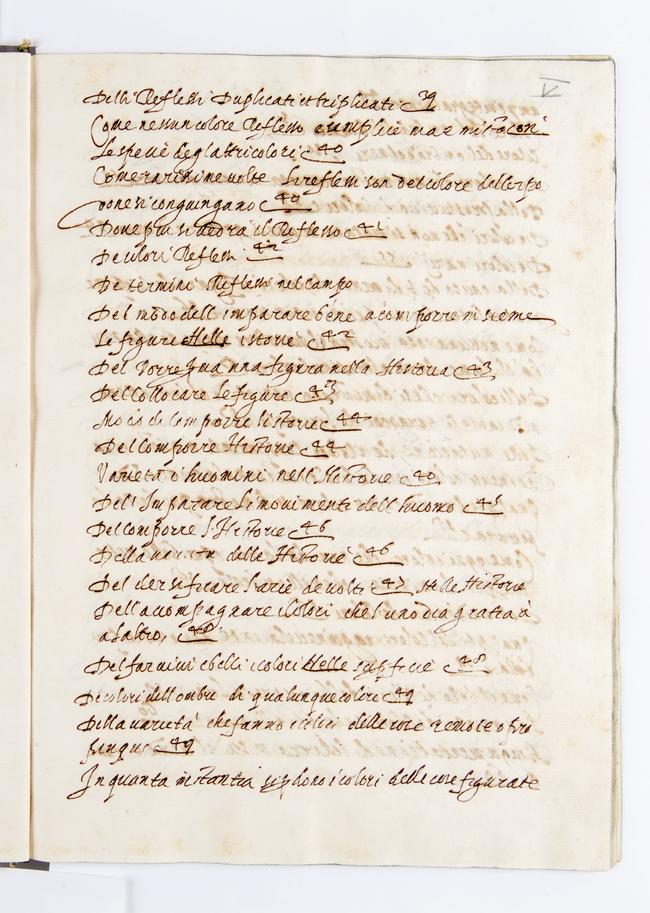 V
Delli Reflessi Duplicati et triplicati 39
Come nessun colore Reflesso e simplice ma e misto con
Le specie degl'altri colori 40
Come rarissime volte Li reflessi son del colore del corpo
done si congiungano 41
Dove piu si vedrà il Reflesso 41
De colori Reflessi
De termini Reflessi nel campo
Del modo dell imparare bene a comporre insieme
Le figure Nelle istorie 42
Del Porre prima una figura nella Historia 43
Del collocare Le figure 43
Modo di Comporre L'istorie 44
Del Comporre Historie 44
Varietà d'huomini nell Historie 40
Dell Imparare Li movimenti dell huomo 45
Del comporre L'Historie 46
Della varietà delle Historie 46
Del diversificare L'arie de volti 47 Nelle Historie
Dell acompagnare i Colori che l'uno dia gratia
a l'altro, 48
Del far vivi e belli i colori Nelle superficie 48
De colori dell ombre di qualunque colore 49
Della varietà che fanno i colori delle cose remote o pro
pinque 49
In quanta distantia si perdono i colori delle cose figurate